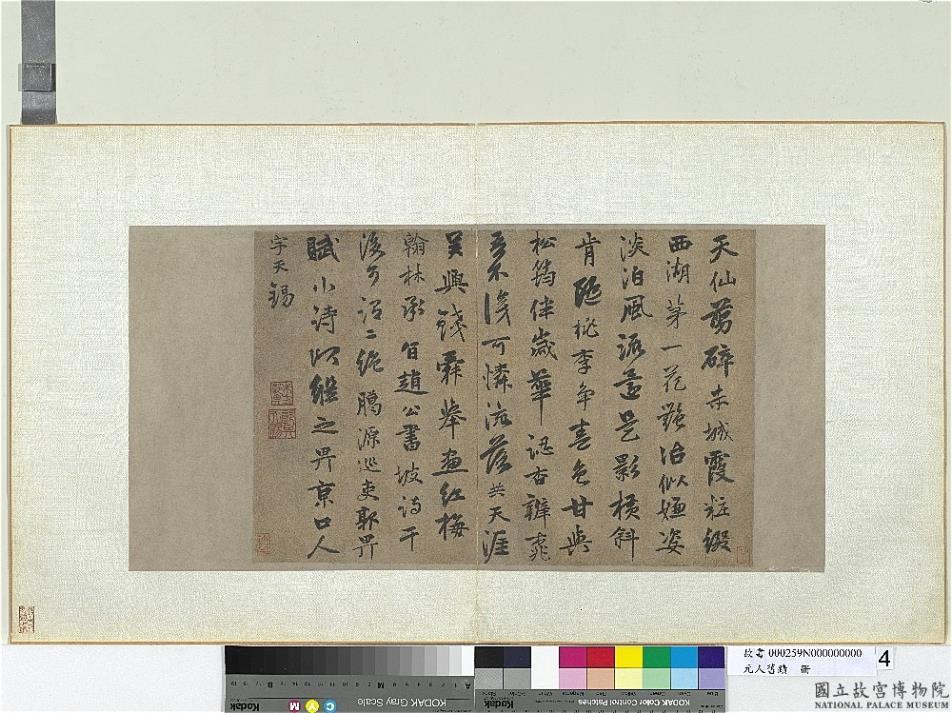 天仙剪碎赤城霞粧綴
西湖第一花豔冶似嫌姿
淡泊風流還是影橫斜
肯陪桃李爭春色甘與
松筠伴歲華認杏辨桃
吾不可憐流落共天涯
吳興錢舜舉畫紅梅
翰林承旨趙公書坡詩于
後可謂二絕源巡吏郭畀
賦小詩以繼之畀京口人
字天錫
故書 000259N000000000
元人舊蹟 冊
4
KODAK Gray Scale
Kodak
C Y M
KODAK Color Control Patches
Kodak
國立故宮博物院
NATIONAL PALACE MUSEUM